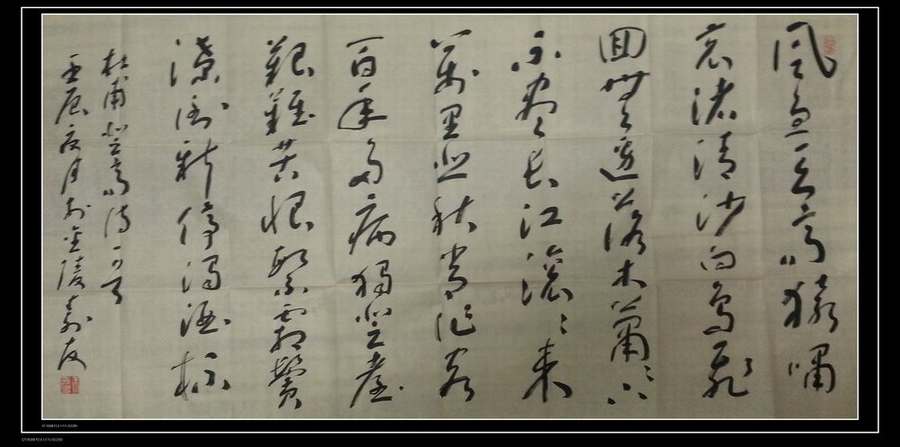 風急天高猿嘯
哀渚清沙白鳥飛
回無邊落木蕭〻下
不盡長江滾〻來
萬里悲秋常作客
百年多病獨登臺
艱難苦恨繁霜鬢
潦倒新停濁酒杯
杜甫登高诗一首
壬辰夏月於金陵